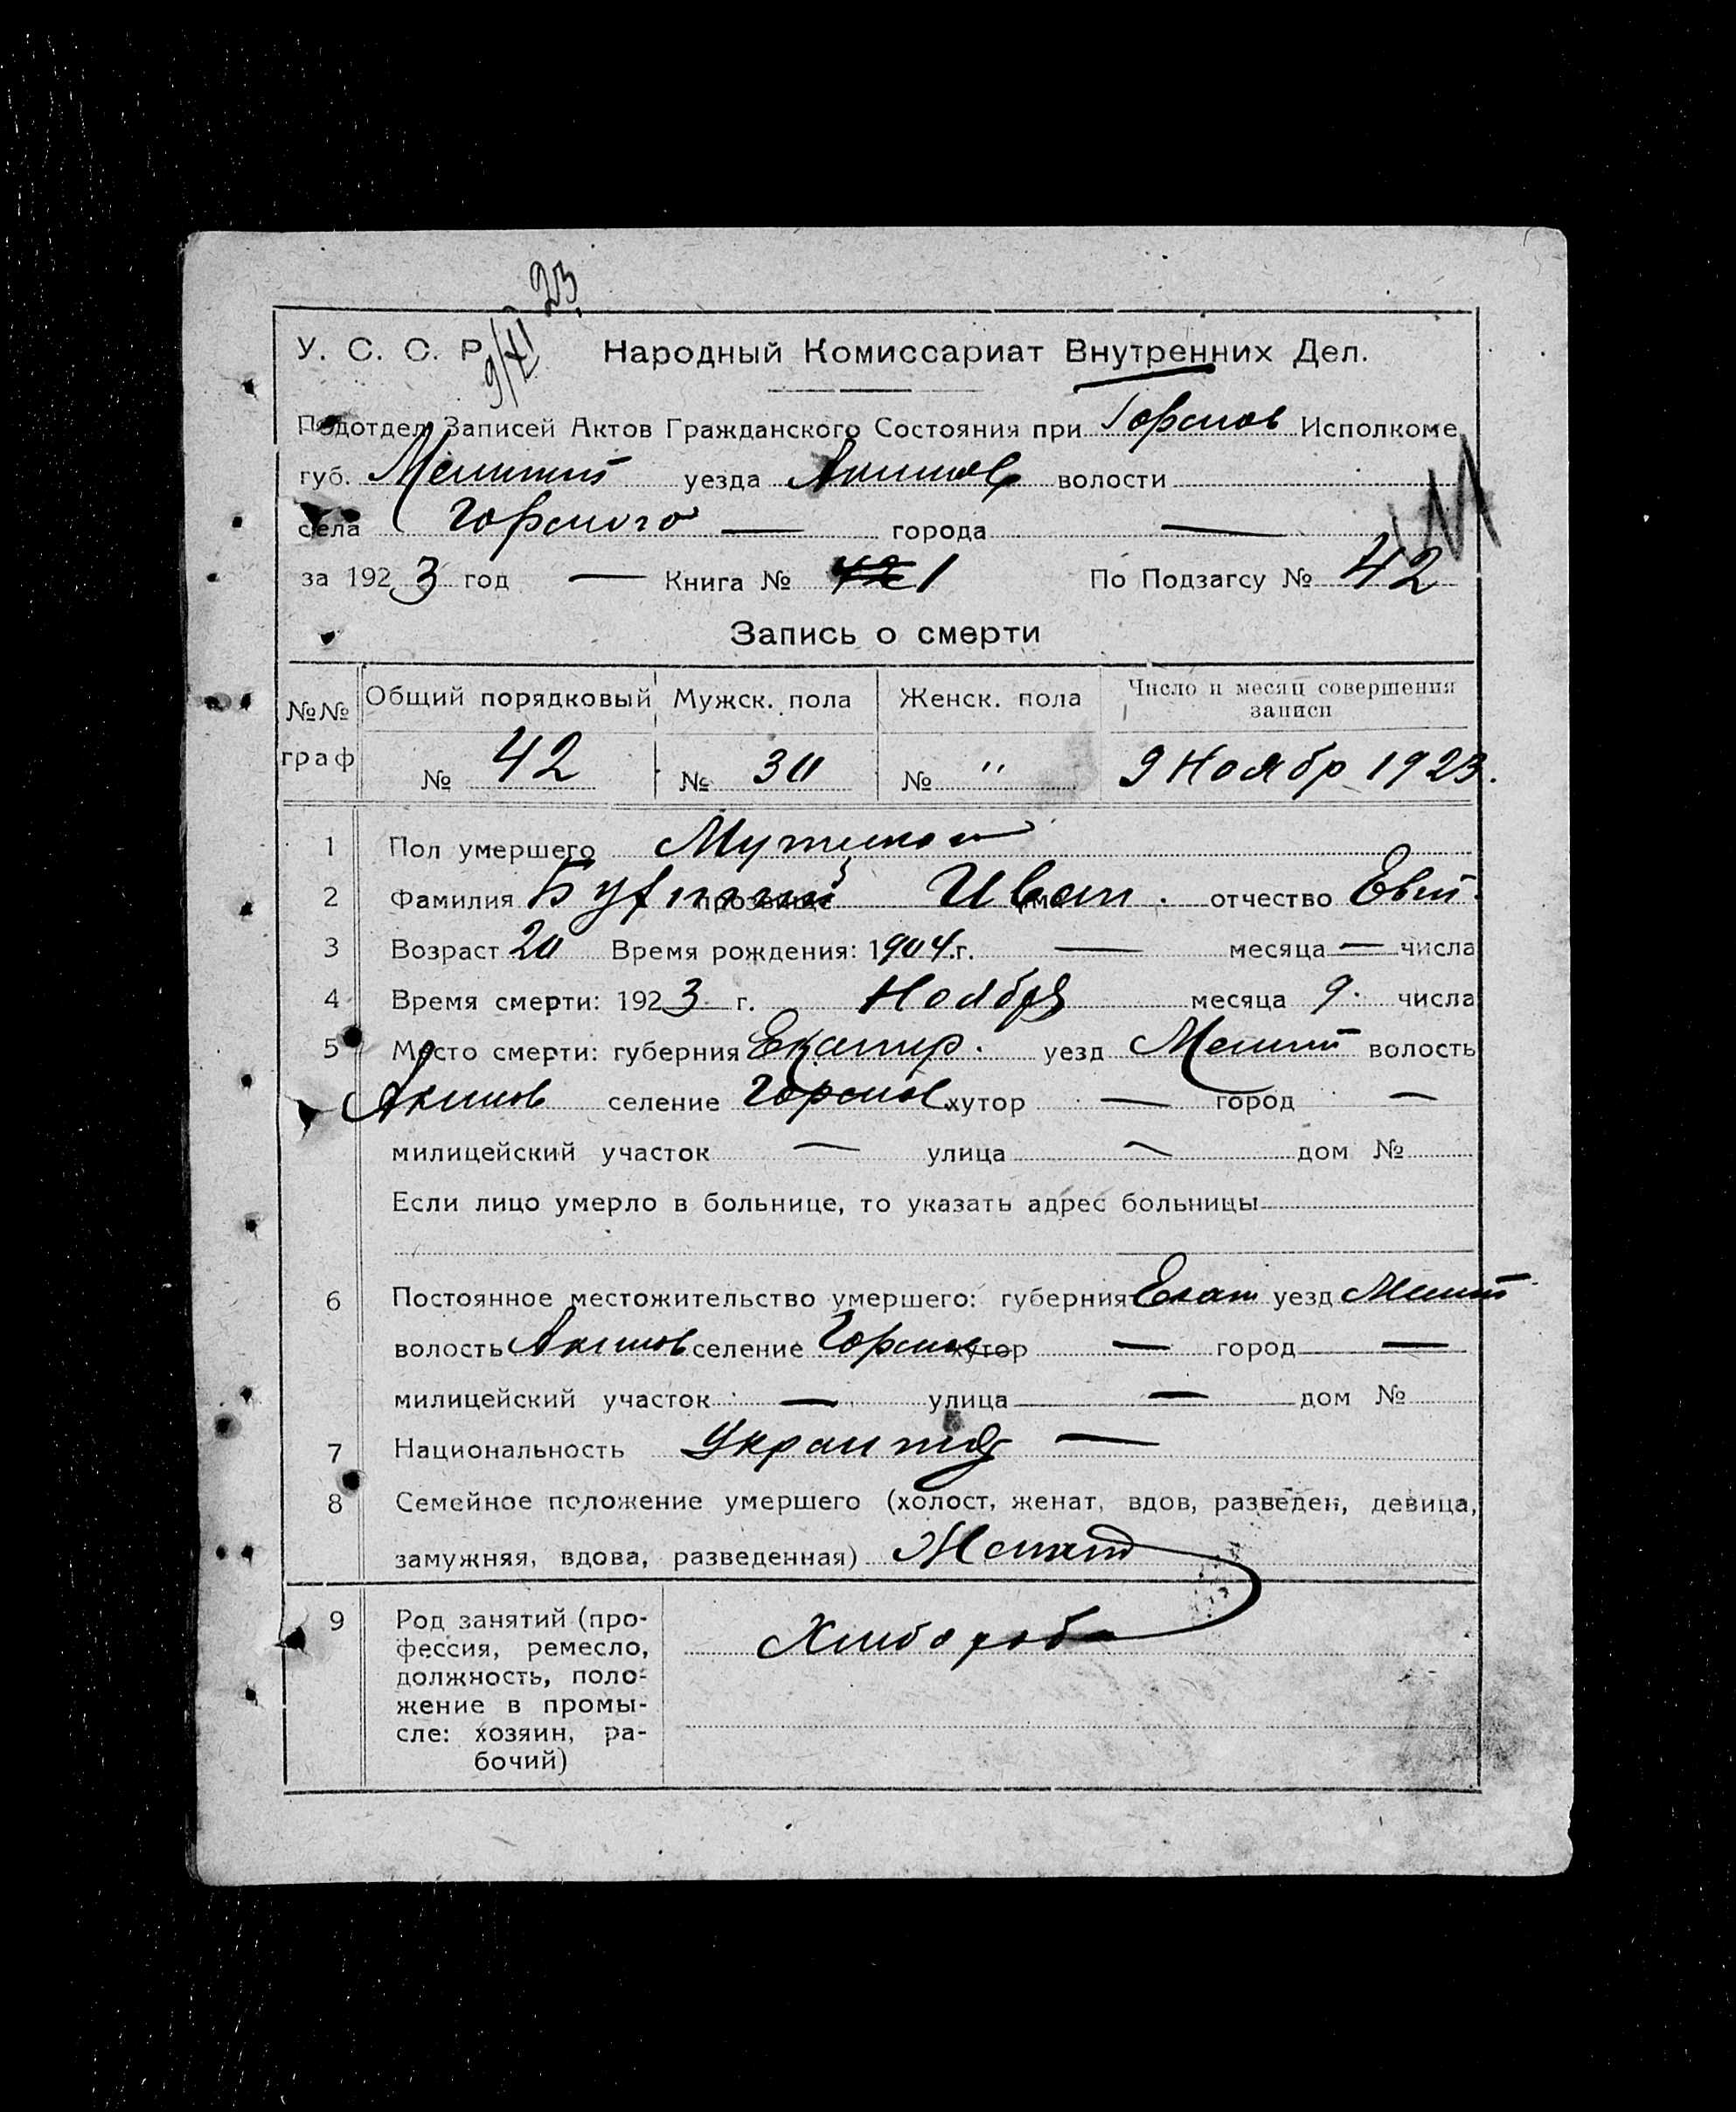 9/XI 23
У. С. С. Р. Народный Комиссариат Внутренних Дел.
Подотдел Записей Актов Гражданского Состояния при Горсков Исполкоме
губ. Мелитоп уезда Акимов волости
села Горского — города —
за 1923 год — Книга № 1 По Подзагсу № 42
Запись о смерти
№№ граф Общий порядковый Мужск. пола Женск. пола Число и месяц совершения записи
№ 42 № 30 № " 9 Ноябр 1923.
1 Пол умершего Мужской
2 Фамилия прозвище имя Иван. отчество
3 Возраст 20 Время рождения: 1904.г. — месяца — числа
4 Время смерти: 1923 г. Ноября месяца 9. числа
5 Место смерти: губерния Екатер. уезд Мелит волость
Акимов селение Горсков хутор — город —
милицейский участок — улица — дом №
Если лицо умерло в больнице, то указать адрес больницы
6 Постоянное местожительство умершего: губерния Екат уезд Мелит
волость Акимов селение Горсков хутор — город —
милицейский участок — улица — дом №
7 Национальность —
8 Семейное положение умершего (холост, женат, вдов, разведен, девица,
замужняя, вдова, разведенная) Женат
9 Род занятий (про-
фессия, ремесло,
должность, поло-
жение в промы-
сле: хозяин, ра-
бочий)
Хлибороб